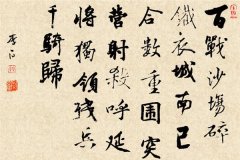 百戰沙場碎
鐵衣城南已
合數重圍突
營射殺呼延
將獨領殘兵
千騎歸